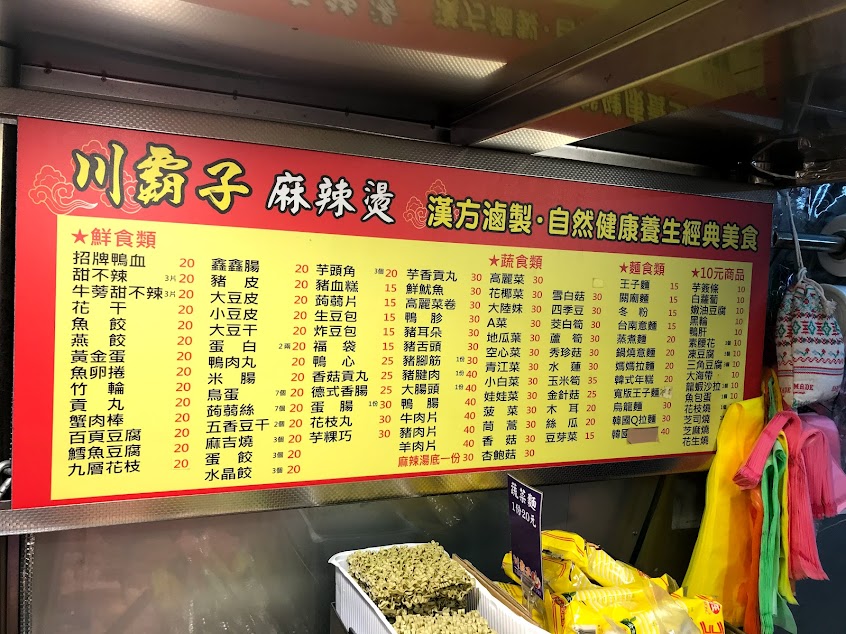 川霸子 麻辣燙 漢方滷製·自然健康養生經典美食
★鮮食類
招牌鴨血 20
甜不辣 3片 20
牛蒡甜不辣 3片 20
花干 20
魚餃 20
燕餃 20
黃金蛋 20
魚卵捲 20
竹輪 20
貢丸 20
蟹肉棒 20
百頁豆腐 20
鱈魚豆腐 20
九層花枝 20
鑫鑫腸 20
豬皮 20
大豆皮 20
小豆皮 20
大豆干 20
蛋白 2兩 20
鴨肉丸 20
米腸 20
鳥蛋 7個 20
蒟蒻絲 7個 20
五香豆干 2個 20
麻吉燒 3個 20
蛋餃 3個 20
水晶餃 3個 20
芋頭角 3個 20
豬血糕 15
蒟蒻片 15
生豆包 15
炸豆包 15
福袋 15
鴨心 25
香菇貢丸 25
德式香腸 25
蛋腸 1份 30
花枝丸 30
芋粿巧 30
芋香貢丸 30
鮮魷魚 30
高麗菜卷 30
鴨胗 30
豬耳朵 30
豬舌頭 30
豬腳筋 1份 30
豬腱肉 1份 30
大腸頭 1份 40
鴨腸 40
牛肉片 40
豬肉片 40
羊肉片 40
麻辣湯底一份 30
★蔬食類
高麗菜
花椰菜 30
大陸妹 30
A菜 30
地瓜葉 30
空心菜 30
青江菜 30
小白菜 30
娃娃菜 30
菠菜 30
茼蒿 30
香菇 30
杏鮑菇 30
雪白菇 30
四季豆 30
茭白筍 30
蘆筍 30
秀珍菇 30
水蓮 30
玉米筍 35
金針菇 25
木耳 20
絲瓜 20
豆芽菜 15
★麵食類
王子麵 15
關廟麵 15
冬粉 15
台南意麵 15
蒸煮麵 20
鍋燒意麵 20
媽媽拉麵 20
韓式年糕 20
寬版王子麵
烏龍麵 30
韓國Q拉麵 30
韓國 40
★10元商品
芋簽條 10
白蘿蔔 10
嫩油豆腐 10
黑輪 10
鴨肝 10
素腰花 10
凍豆腐 10
三角豆腐 10
大海帶 10
龍蝦沙拉 10
魚包蛋 10
花枝燒 10
芝司燒 10
芝麻燒 10
花生燒 10
蔬菜麵
1份20元
MADE